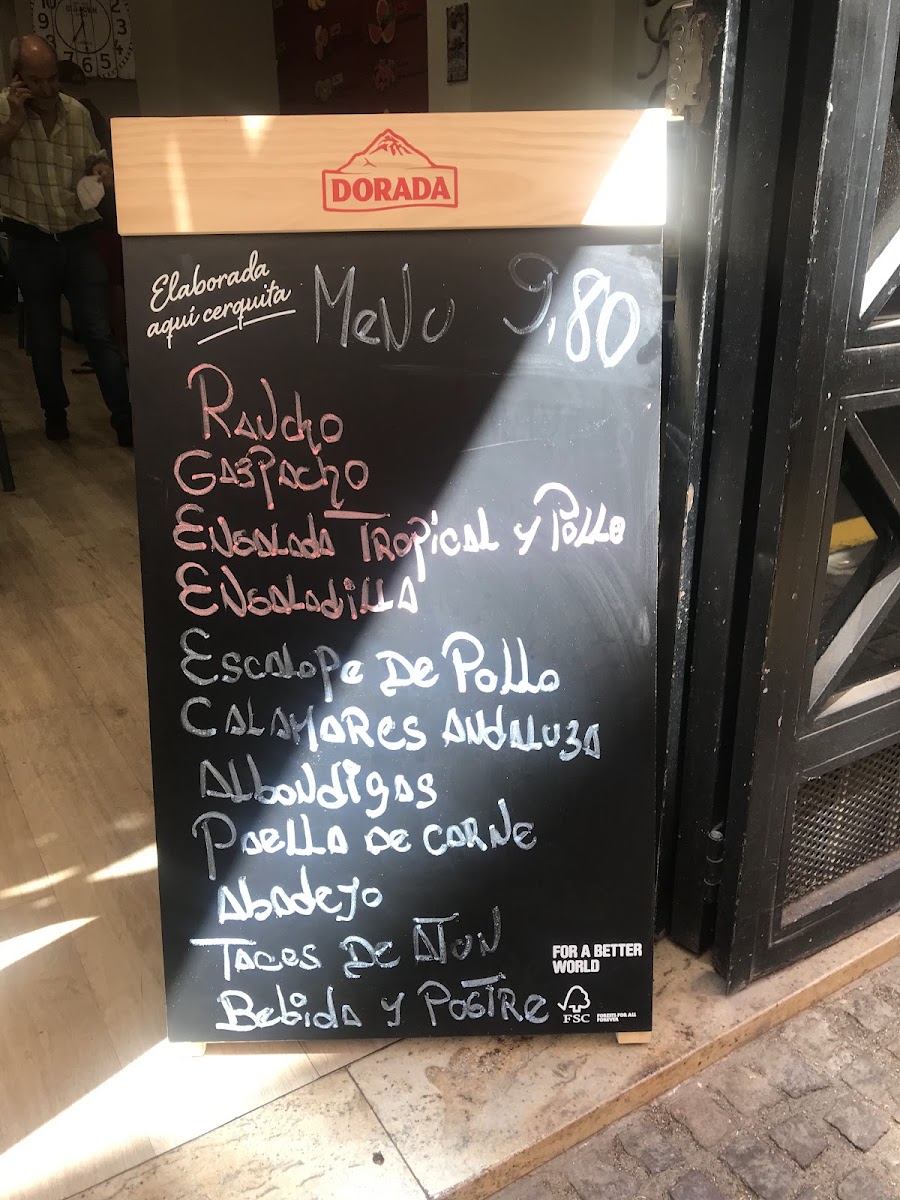 DORADA
Elaborada
aquí cerquita
MeNu 9,80
Rancho
Gazpacho
Ensalada Tropical y Pollo
Ensaladilla
Escalope De Pollo
Calamares Andaluza
Albondigas
Paella de carne
Abadejo
Tacos De Atun
Bebida y Postre
FOR A BETTER
WORLD
FSC
FORESTS FOR ALL
FOREVER